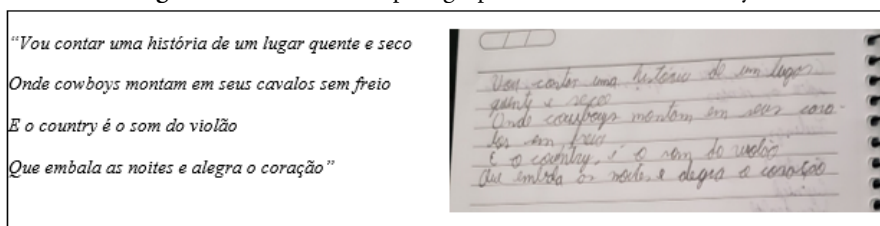 “Vou contar uma história de um lugar quente e seco
Onde cowboys montam em seus cavalos sem freio
E o country é o som do violão
Que embala as noites e alegra o coração”
Vou contar uma história de um lugar
quente e seco
Onde cowboys montam em seus cava-
los sem freio
E o country, é o som do violão
Que embala as noites e alegra o coração